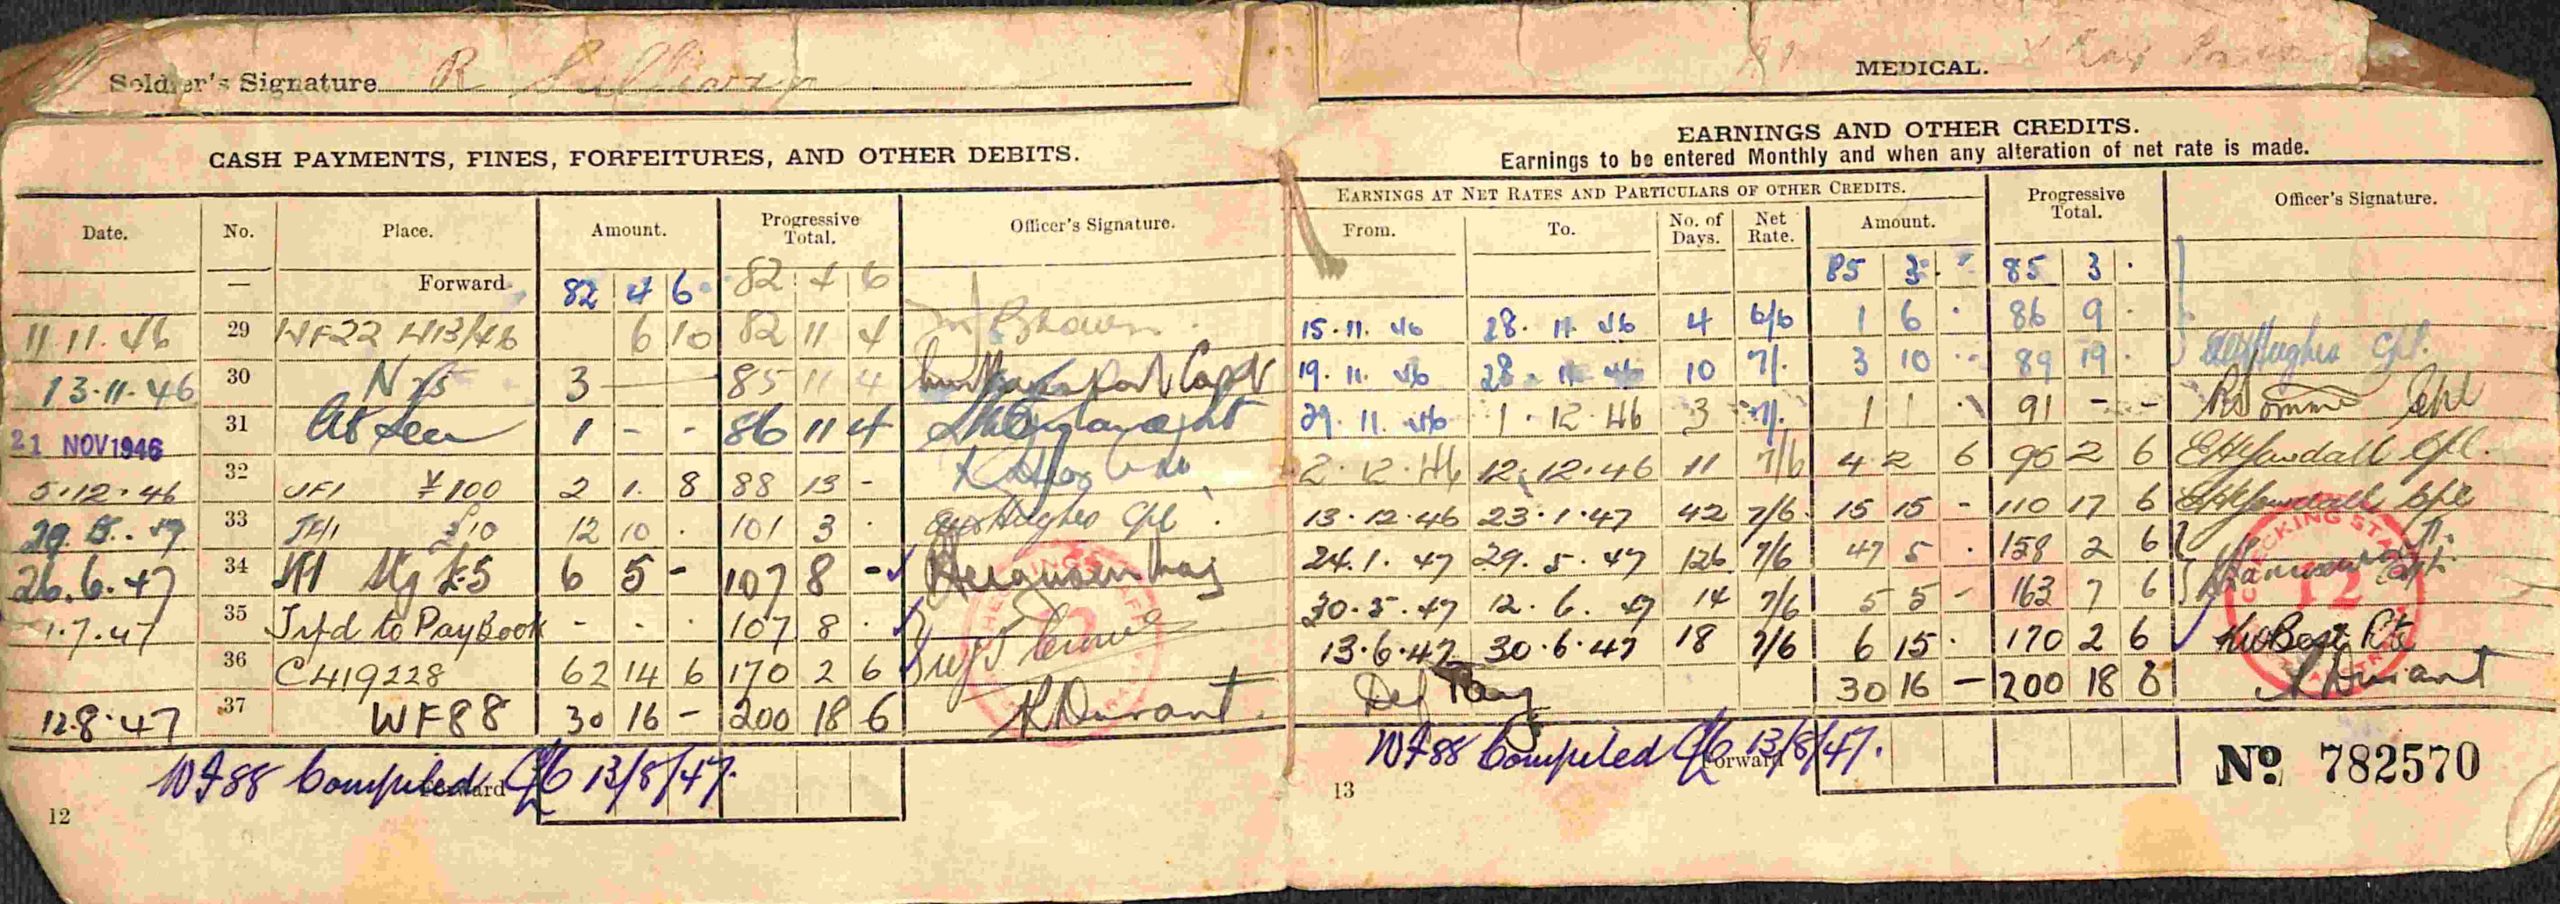 Soldier's Signature R Sullivan
CASH PAYMENTS, FINES, FORFEITURES, AND OTHER DEBITS.
Date. No. Place. Amount. Progressive Total. Officer's Signature.
— Forward 82 4 6 82 4 6
11.11.46 29 WF22 W13/46 6 10 82 11 4 Brown
13.11.46 30 3 — 85 11 4 Capt
21 NOV 1946 31 At Sea 1 - - 86 11 4
5.12.46 32 JF1 ¥100 2 1. 8 88 13 -
29 5. 47 33 £10 12 10 . 101 3 . Hughes Cpl.
26.6.47 34 Stg £5 6 5 - 107 8 -
1.7.47 35 Trfd to PayBook - . . 107 8 .
36 C419228 62 14 6 170 2 6
12.8.47 37 WF88 30 16 - 200 18 6 K Durant.
WF88 Compiled 13/8/47.
Forward
12
MEDICAL.
EARNINGS AND OTHER CREDITS.
Earnings to be entered Monthly and when any alteration of net rate is made.
EARNINGS AT NET RATES AND PARTICULARS OF OTHER CREDITS. Progressive Total. Officer's Signature.
From. To. No. of Days. Net Rate. Amount.
85 3 . 85 3 .
15.11.46 28.11.46 4 6/6 1 6 . 86 9 .
19.11.46 28.11.46 10 7/. 3 10 - 89 19 . Hughes Cpl.
29.11.46 1.12.46 3 7/. 1 1 . 91 - -
2.12.46 12.12.46 11 7/6 4 2 6 95 2 6 Cpl.
13.12.46 23.1.47 42 7/6 15 15 - 110 17 6 Cpl
24.1.47 29.5.47 126 7/6 47 5 . 158 2 6
30.5.47 12.6.47 14 7/6 5 5 - 163 7 6
13.6.47 30.6.47 18 7/6 6 15 . 170 2 6 Pte
Def Pay 30 16 - 200 18 6 K Durant
WF88 Compiled 13/8/47.
Forward
13
No 782570
CHECKING STAFF
12